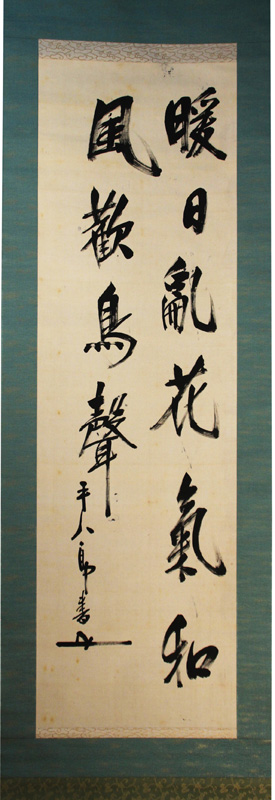 暖日亂花氣和
風歡鳥聲
平八郎書